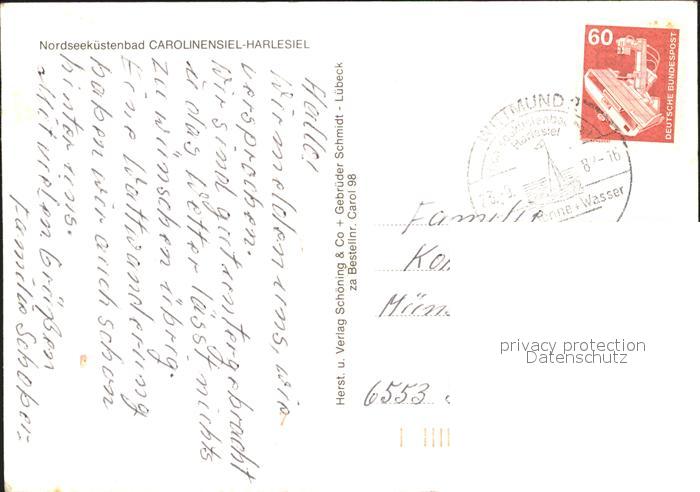 Nordseeküstenbad CAROLINENSIEL-HARLESIEL
Hallo!
Wir melden uns, wie
versprochen.
Wir sind gut untergebracht
u. das Wetter lässt nichts
zu wünschen übrig.
Eine Wattwanderung
haben wir auch schon
hinter uns.
Mit vielen Grüßen
Familie
Herst. u. Verlag Schöning & Co + Gebrüder Schmidt - Lübeck
za Bestellnr. Carol 98
60
DEUTSCHE BUNDESPOST
WITTMUND
Nordseeküstenbad
Harlesiel
82-16
Sonne + Wasser
Familie
6553
privacy protection
Datenschutz